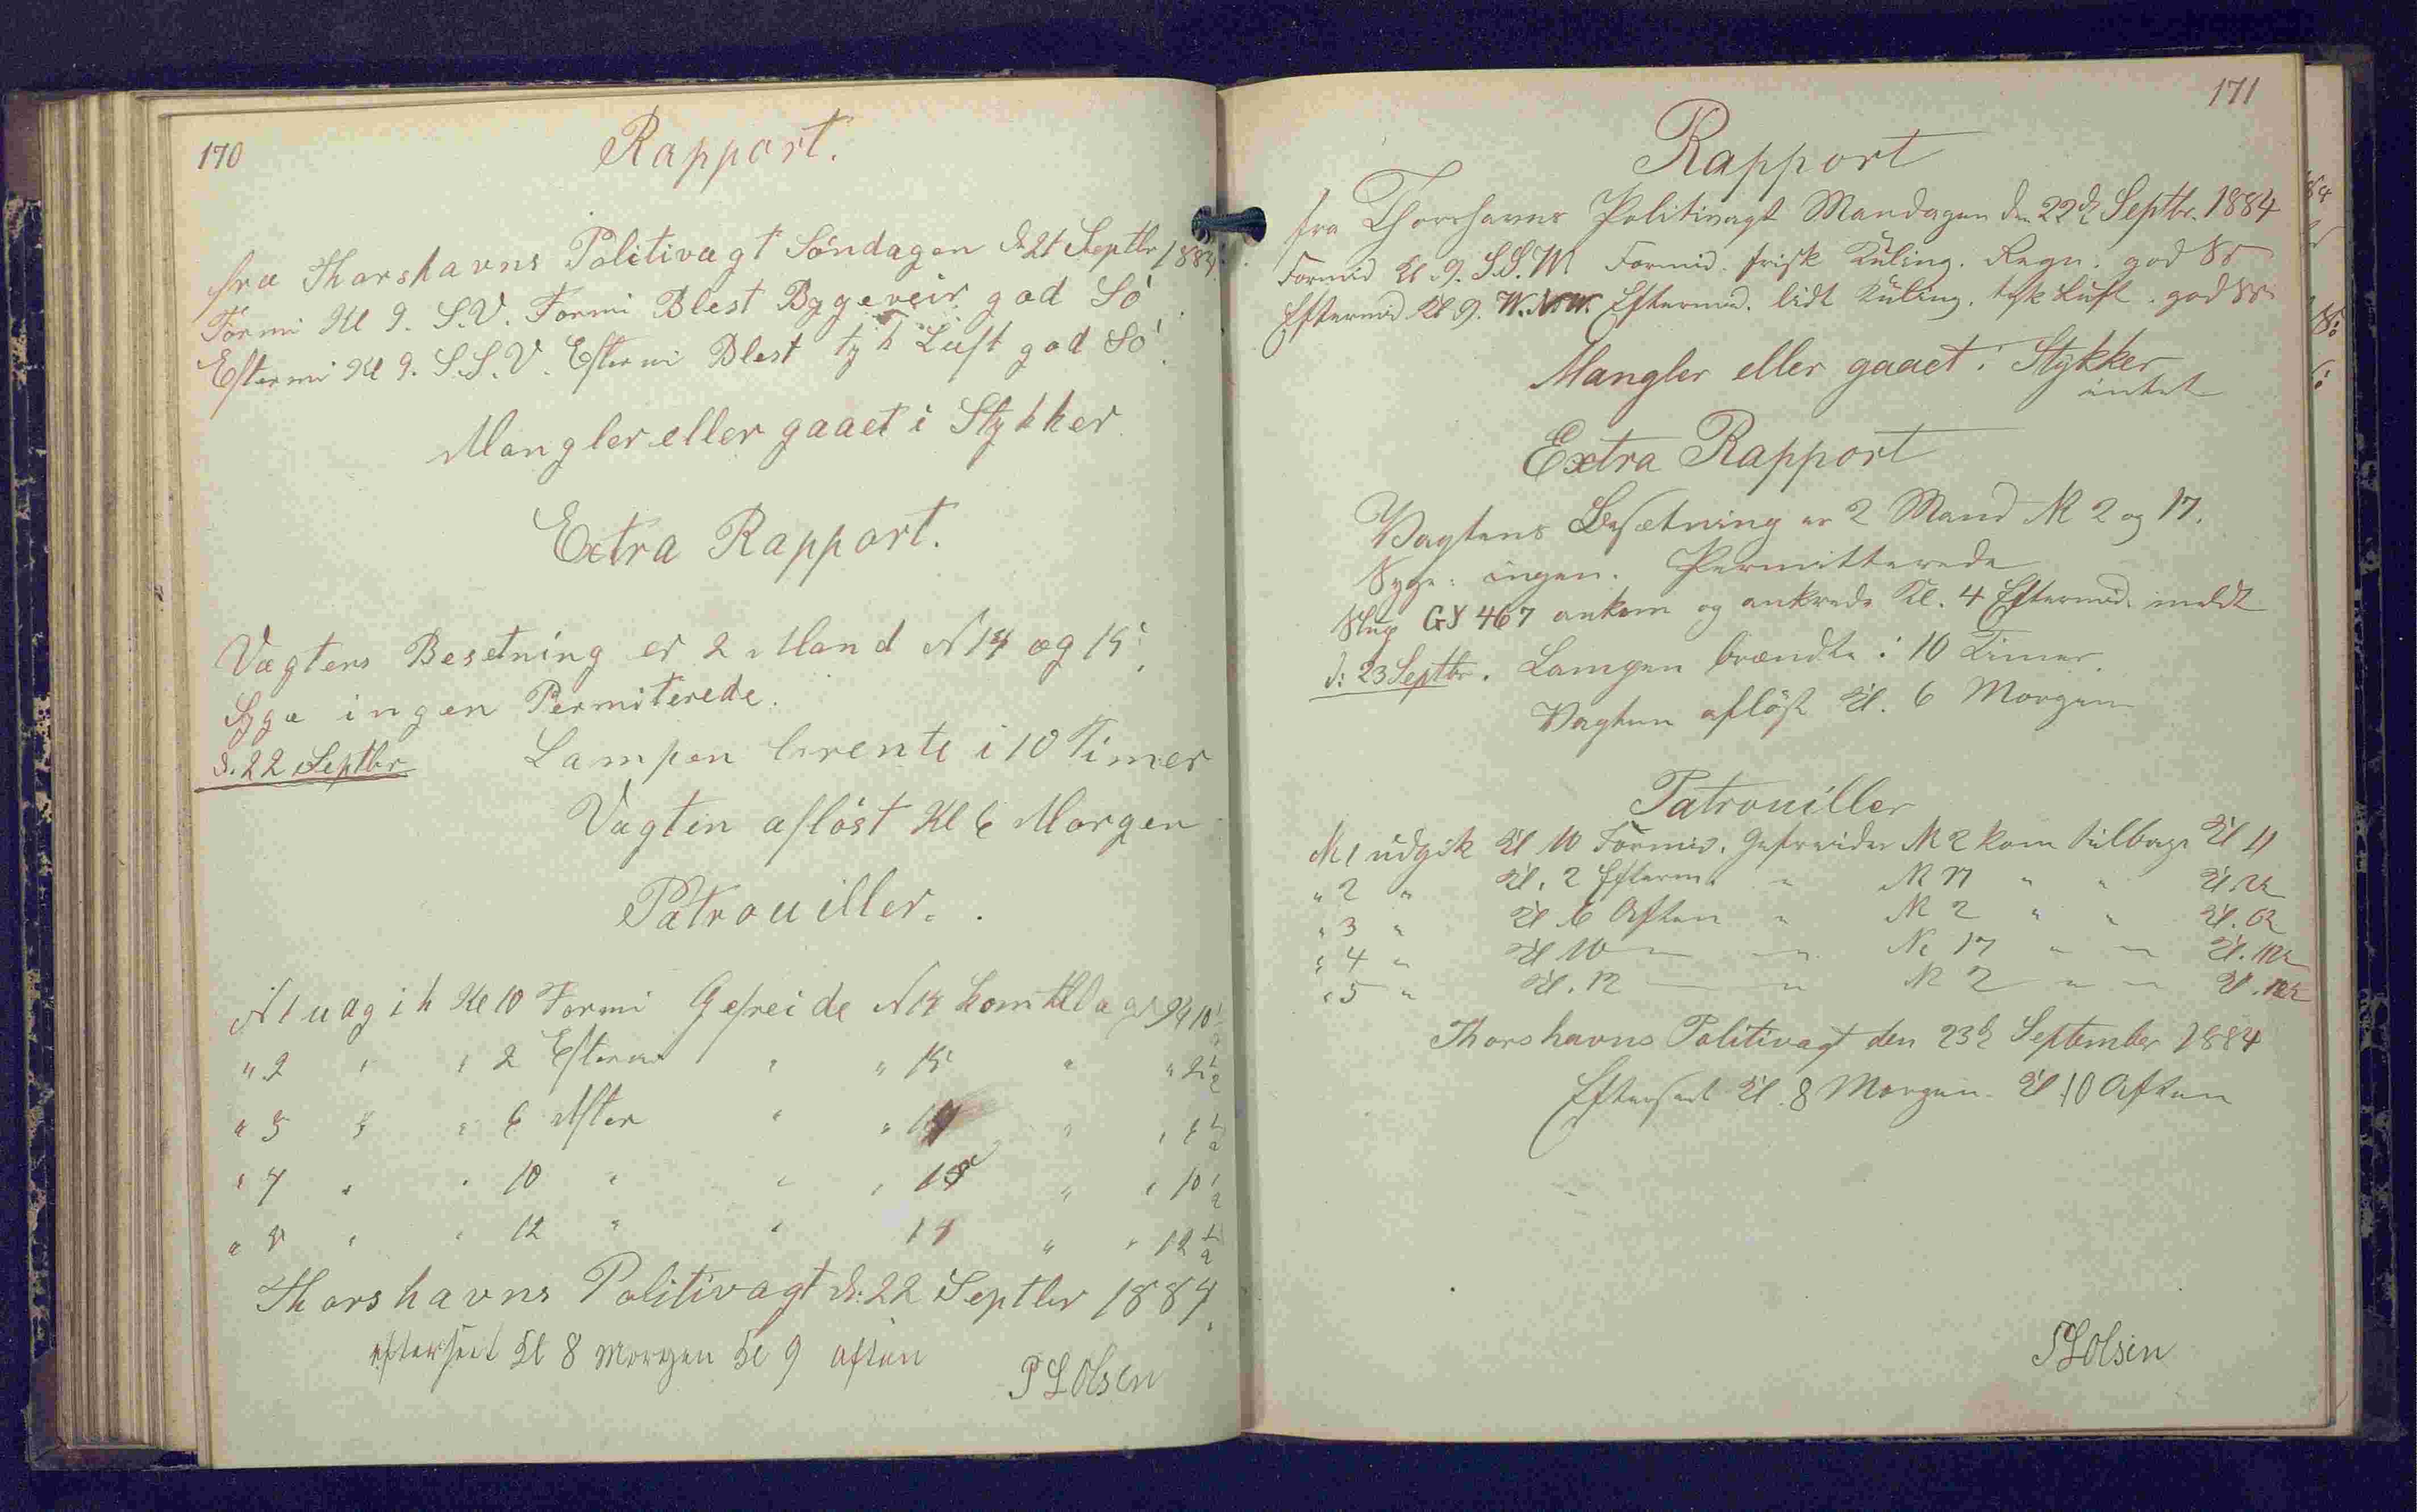 170
Rapport.
fra Thorshavns Politivagt Söndagen d. 21 Septbr 1884.
Formi Kl 9. S.V. Formi Blest Bygeveir god Sö
Eftermi Kl 9. S.S.V. Eftermi Blest tyk Luft god Sö
Mangler eller gaaet i Stykker
Extra Rapport.
Vagtens Besetning er 2 Mand N 14 og 15.
Syge ingen Permiterede.
d. 22 Septbr Lampen brente i 10 Timer
Vagten aflöst Kl 6 Morgen
Patrouiller.
N 1 uagik Kl 10 Formi Gefreide N 14 kom tilbage Kl 10 1/2
" 2 " " 2 Efterm " " 15 " " 2 1/2
" 3 " " 6 After " " 14 " " 6 1/2
" 4 " " 10 " " " 15 " " 10 1/2
" 5 " " 12 " " 14 " " 12 1/2
Thorshavns Politivagt d. 22 Septbr 1884.
efterseet Kl 8 Morgen Kl 9 aften
P L Olsen
171
Rapport
fra Thorshavns Politivagt Mandagen den 22d Septbr. 1884
Formid Kl. 9. S.S.W. Formid. frisk Kuling. Regn. god Sö
Eftermid Kl 9. W.N.W. Eftermid. lidt Kuling. tyk Luft. god Sö
Mangler eller gaaet i Stykker
intet
Extra Rapport
Vagtens Besætning er 2 Mand N 2 og 17.
Syge: ingen. Permitterede
Slup GY 467 ankom og ankrede Kl. 4 Eftermid. meldt
d: 23 Septbr. Lampen brændte i 10 Timer.
Vagten aflöst Kl. 6 Morgen
Patrouiller
N 1 udgik Kl 10 Formid. Gefreider N 2 kom tilbage Kl 11
" 2 " Kl. 2 Efterm. " N 17 " " Kl. 2 1/2
" 3 " Kl 6 Aften " N 2 " " Kl. 6 1/2
" 4 " Kl 10 — " N 17 " " Kl. 10 1/2
" 5 " Kl. 12 — " N 2 " " Kl. 12 1/2
Thorshavns Politivagt den 23d September 1884
Efterseet Kl. 8 Morgen. Kl 10 Aften
P L Olsen